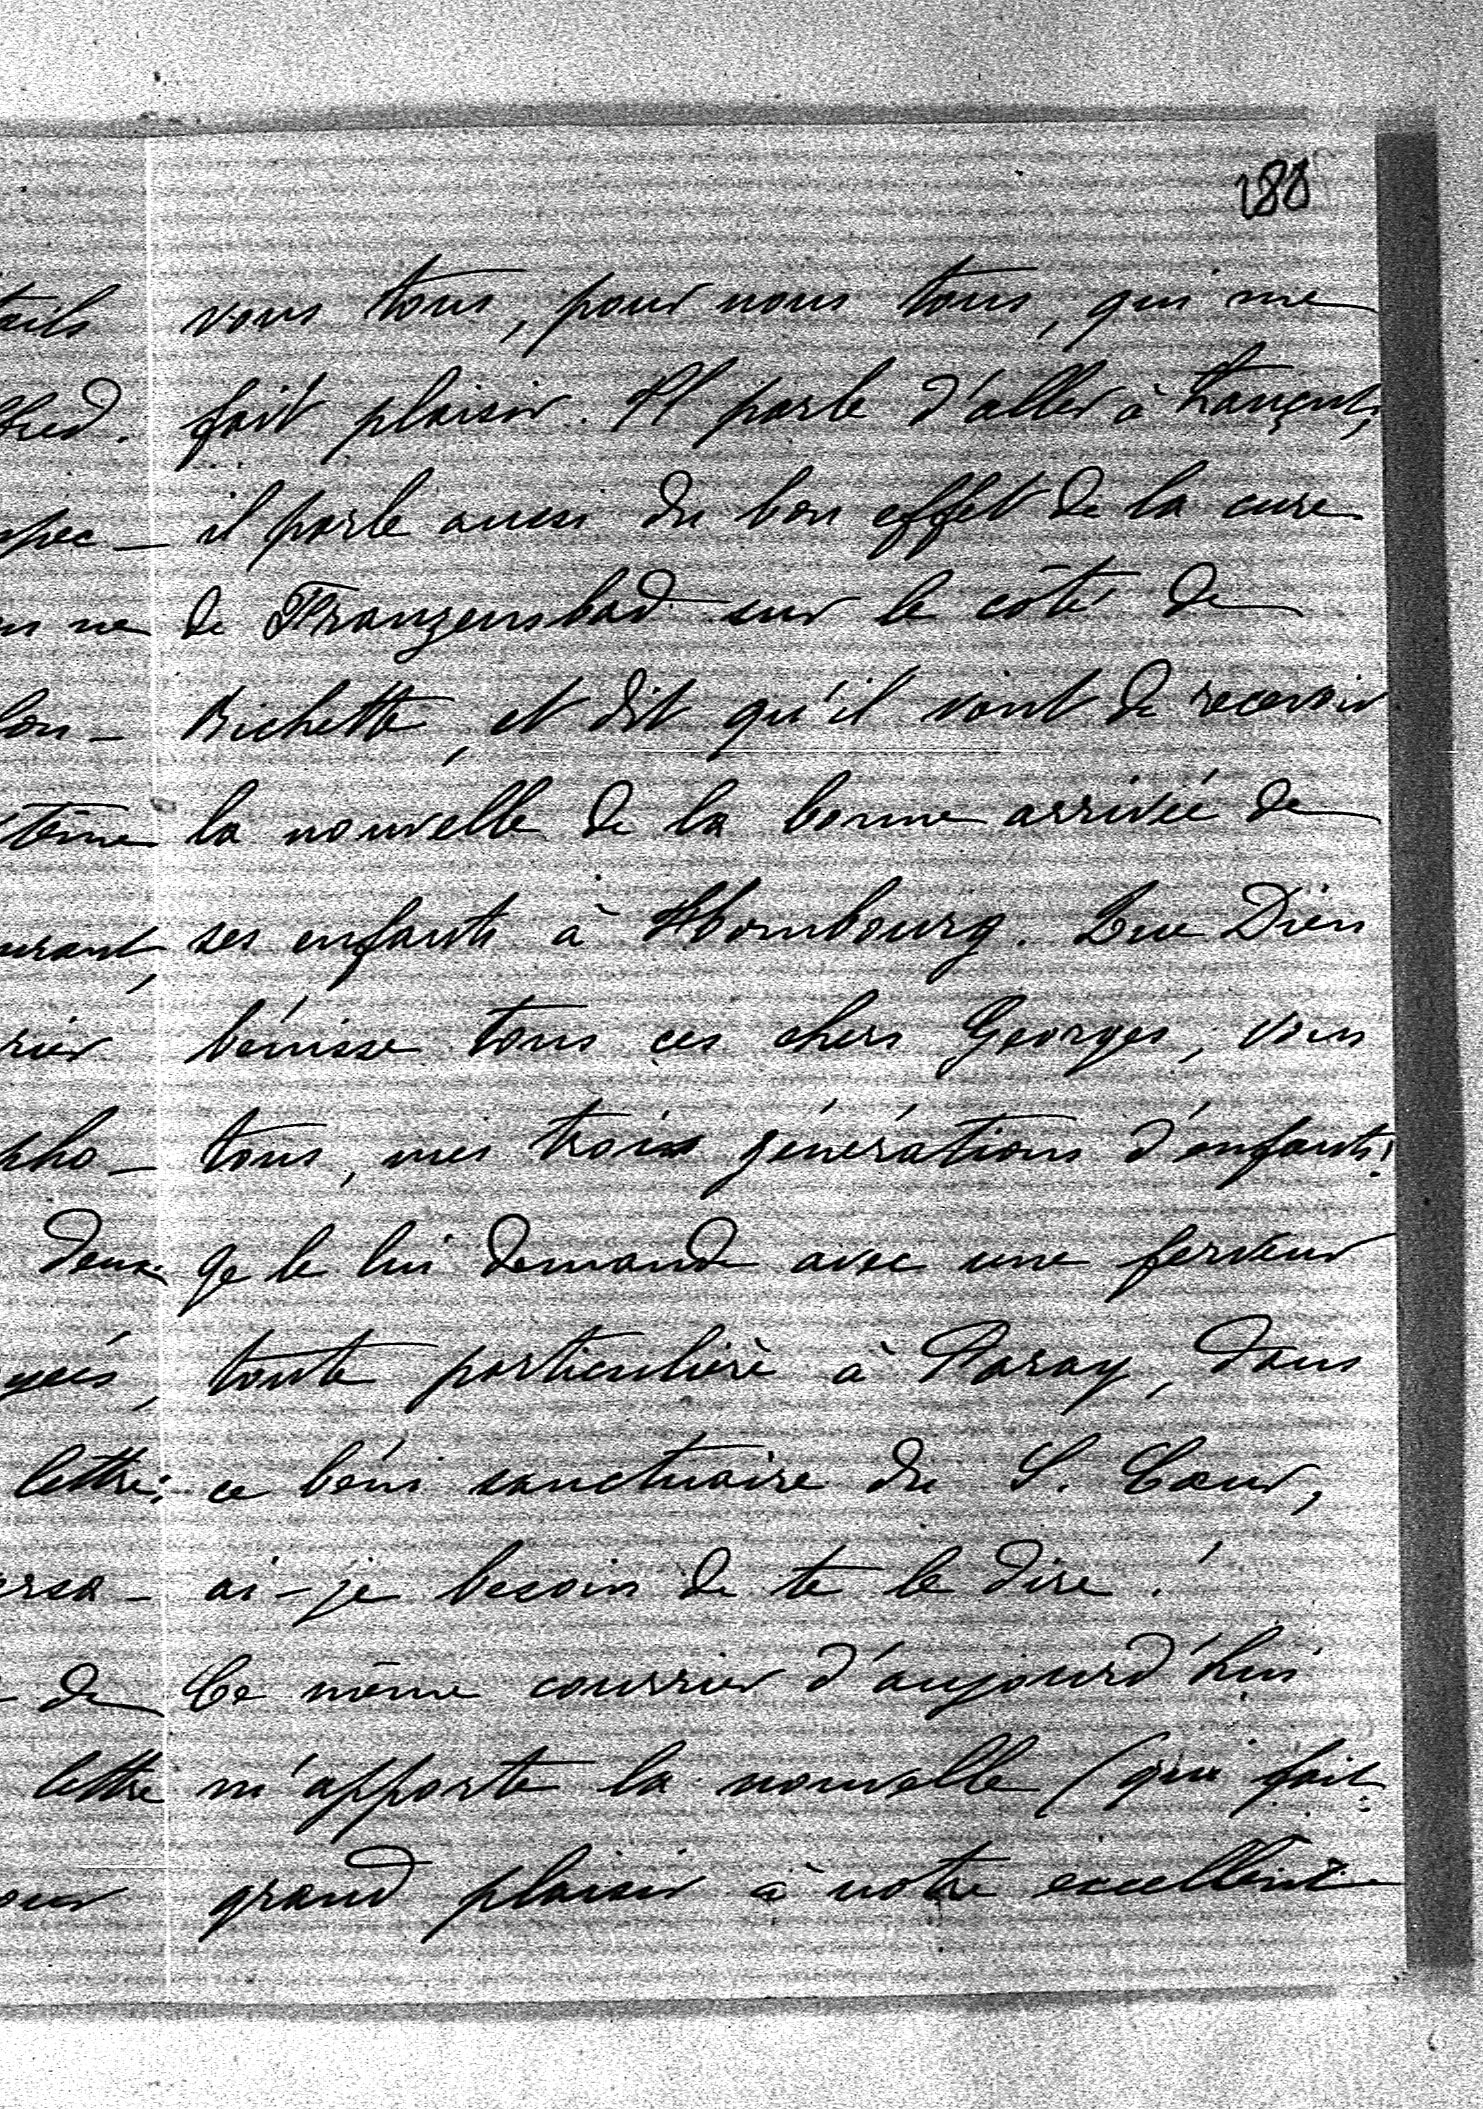 188
vous tous, pour nous tous, qui me
fait plaisir. Il parle d'aller à Lançut,
il parle aussi du bon effet de la cure
de Franzensbad sur le côté de
Bichette, et dit qu'il vient de recevoir
la nouvelle de la bonne arrivée de
ses enfants à Hombourg. Que Dieu
bénisse tous ces chers Georges, vous
tous, mes trois générations d'enfants!
Je le lui demande avec une ferveur
toute particulière à Paray, dans
ce béni sanctuaire du S. Cœur,
ai-je besoin de te le dire!
Ce même courrier d'aujourd'hui
m'apporte la nouvelle (qui fait
grand plaisir à notre excellente